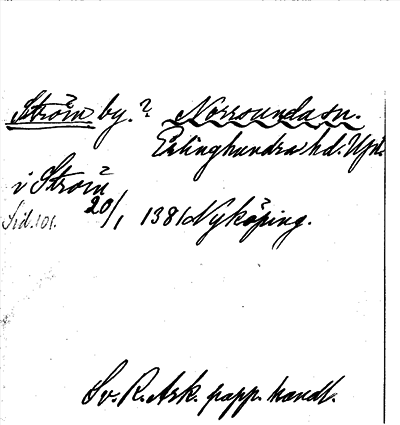 Ström by.? Norrsunda sn.
Erlinghundra hd. Upl.
i Ström
Sid. 101. 20/1 1381 Nyköping.
Sv. R. Ark. papp. handl.